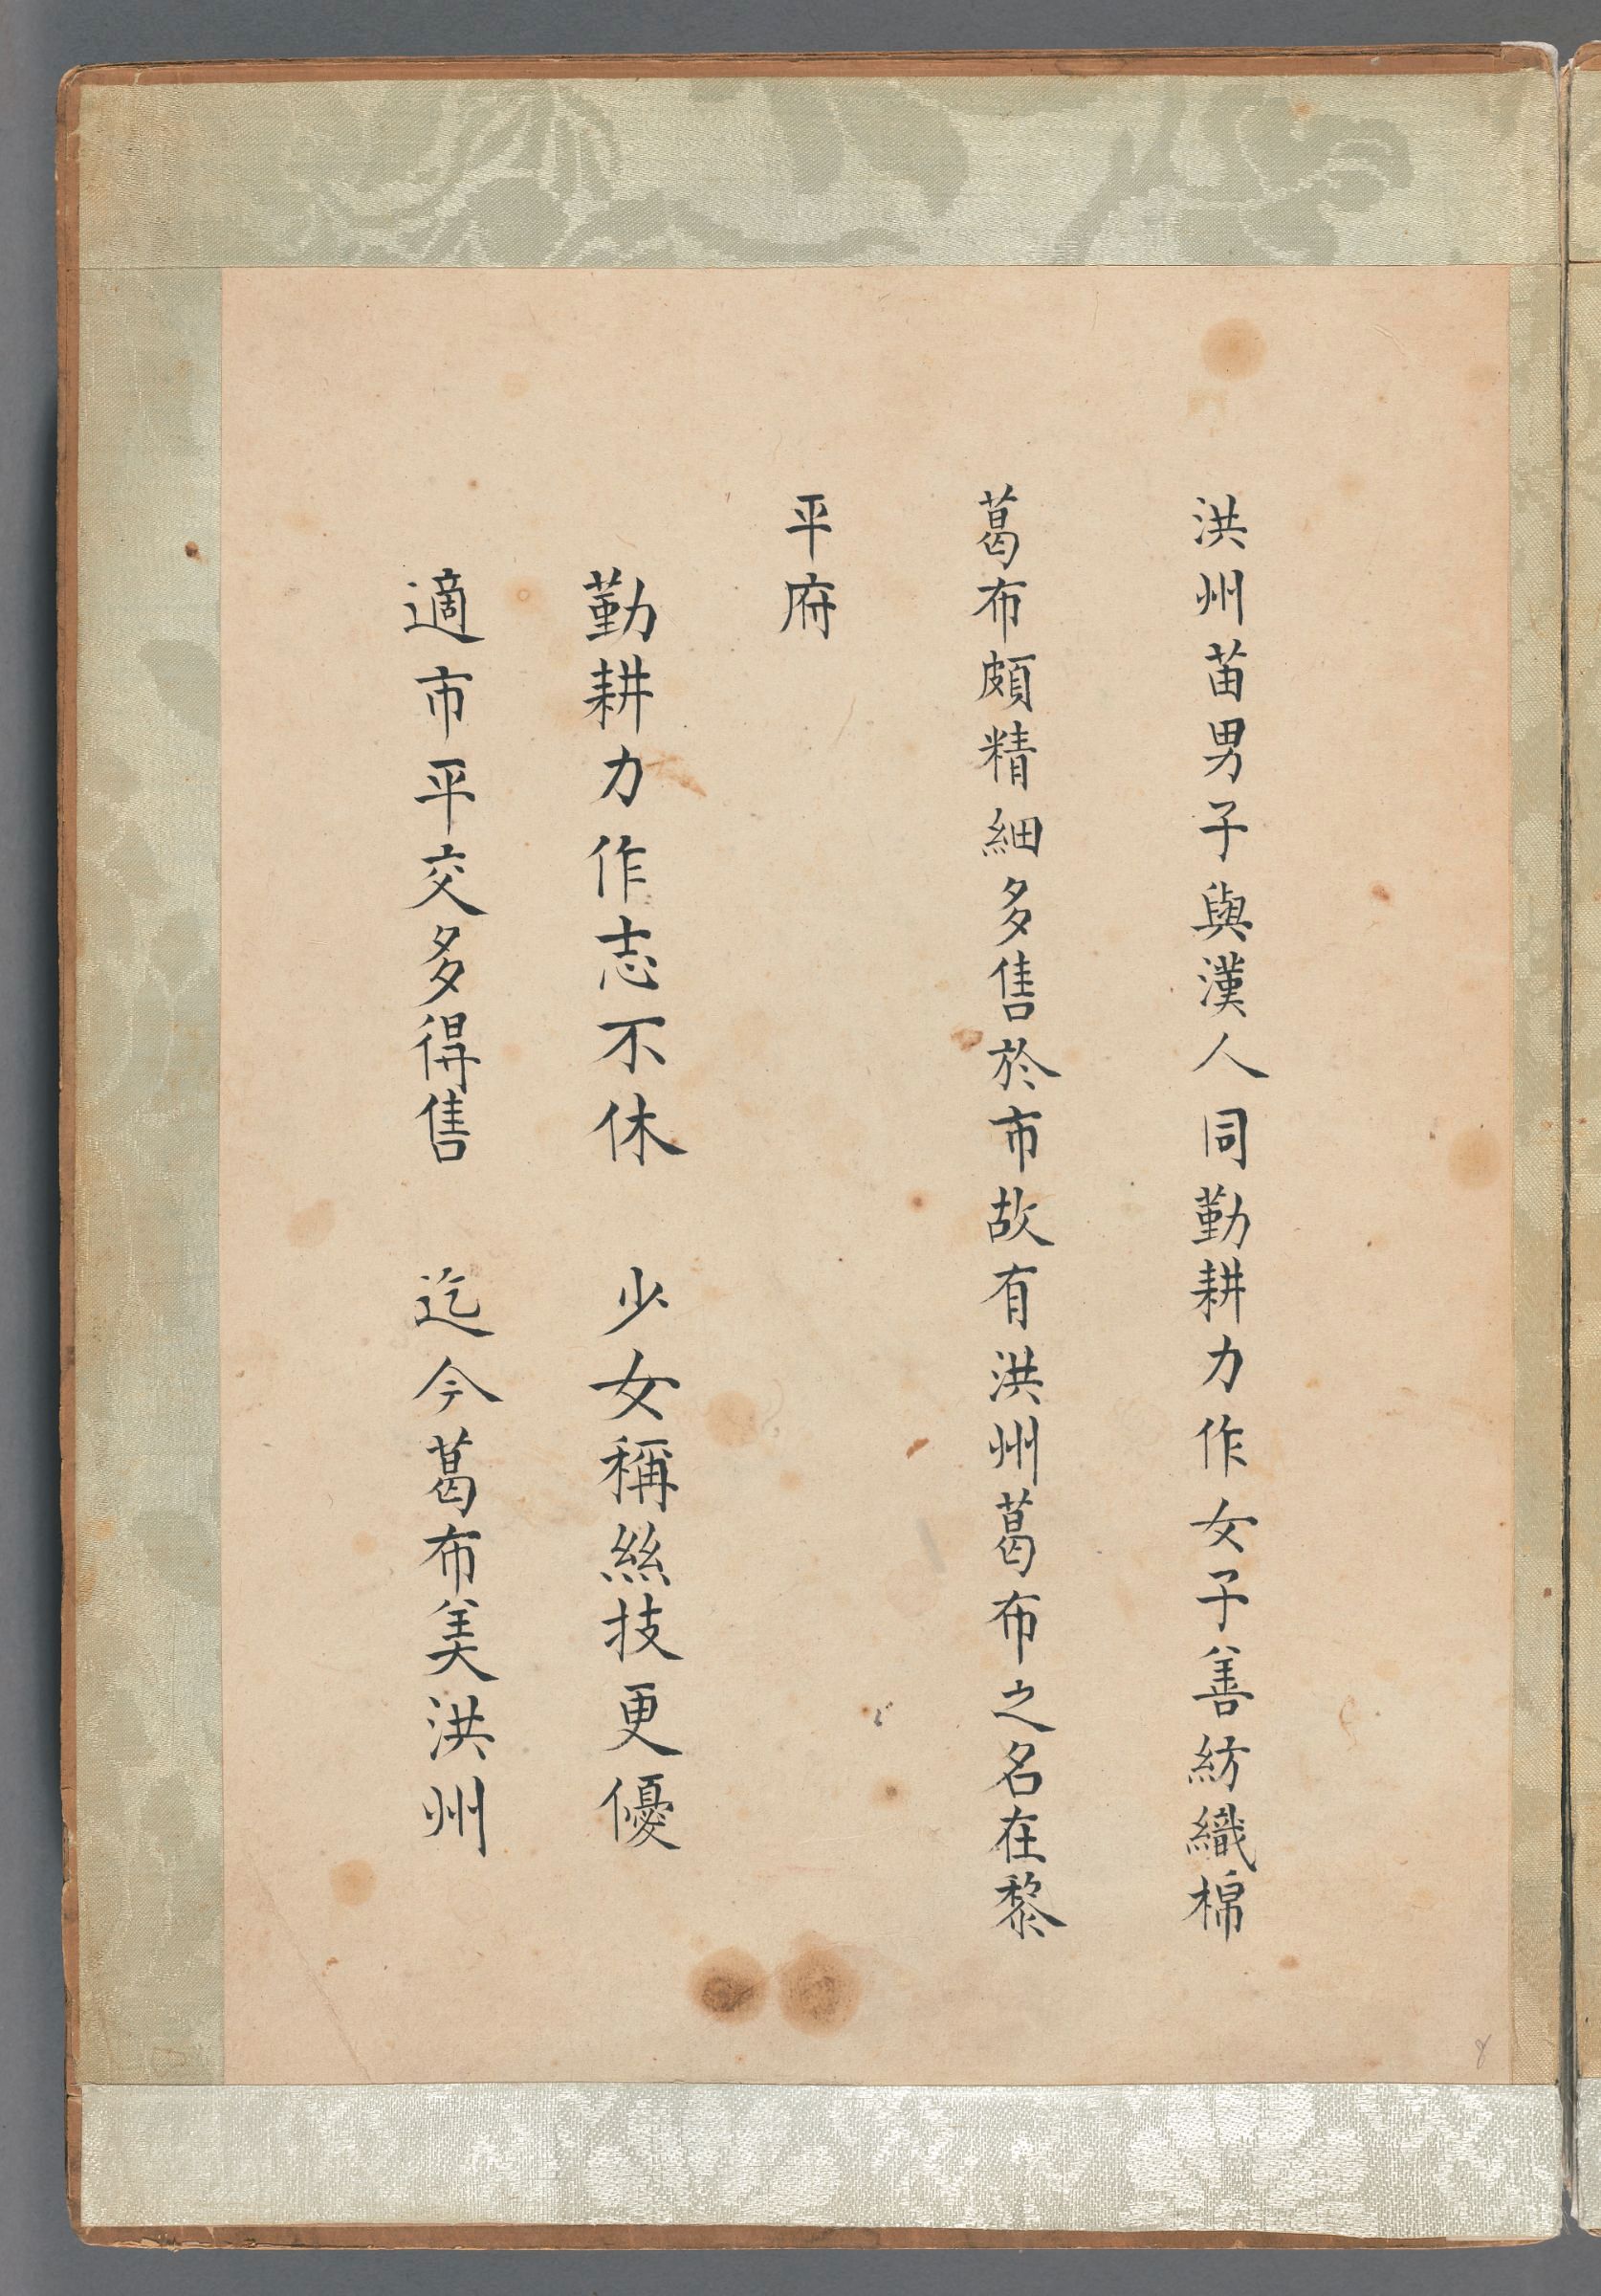 洪州苗男子與漢人同勤耕力作女子善紡織棉
葛布頗精細多售於市故有洪州葛布之名在黎
平府
勤耕力作志不休　少女稱絲技更優
適市平交多得售　迄今葛布美洪州
8